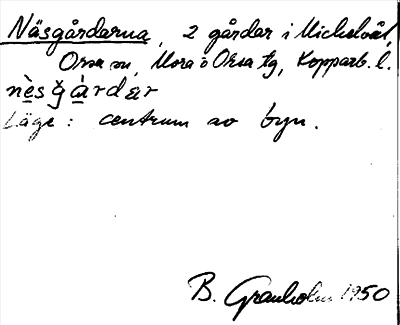 Näsgårdarna, 2 gårdar i Mickelvål,
Orsa sn, Mora o Orsa tg, Kopparb. l.
nèsğà̱rdar
Läge: centrum av byn.
B. Granholm 1950